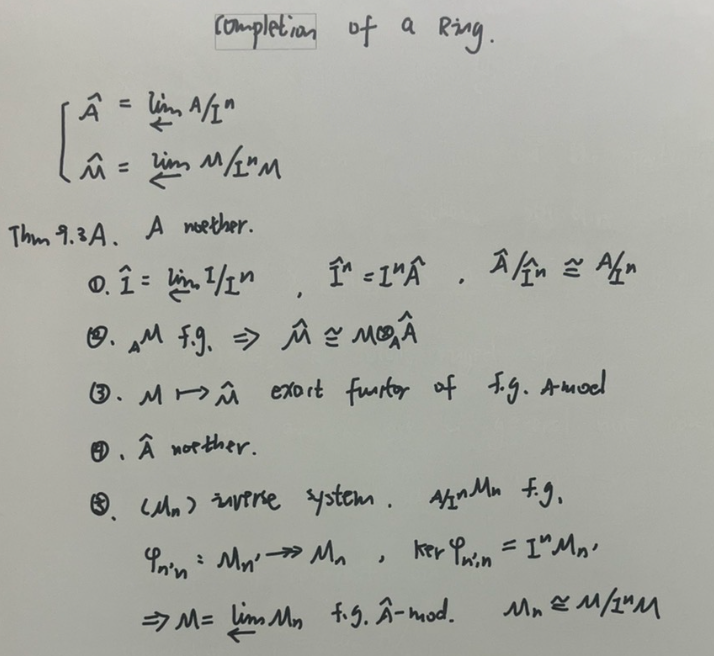 Completion of a Ring.
Â = lim← A/Iⁿ
M̂ = lim← M/IⁿM
Thm 9.3A. A noether.
①. Î = lim← I/Iⁿ , Îⁿ = IⁿÂ . Â/Îⁿ ≅ A/Iⁿ
②. ₐM f.g. ⇒ M̂ ≅ M⊗ₐÂ
③. M ↦ M̂ exact functor of f.g. A-mod
④. Â noether.
⑤. (Mₙ) inverse system. A/Iⁿ Mₙ f.g.
φₙ'ₙ : Mₙ' ↠ Mₙ , ker φₙ',ₙ = IⁿMₙ'
⇒ M = lim← Mₙ f.g. Â-mod. Mₙ ≅ M/IⁿM